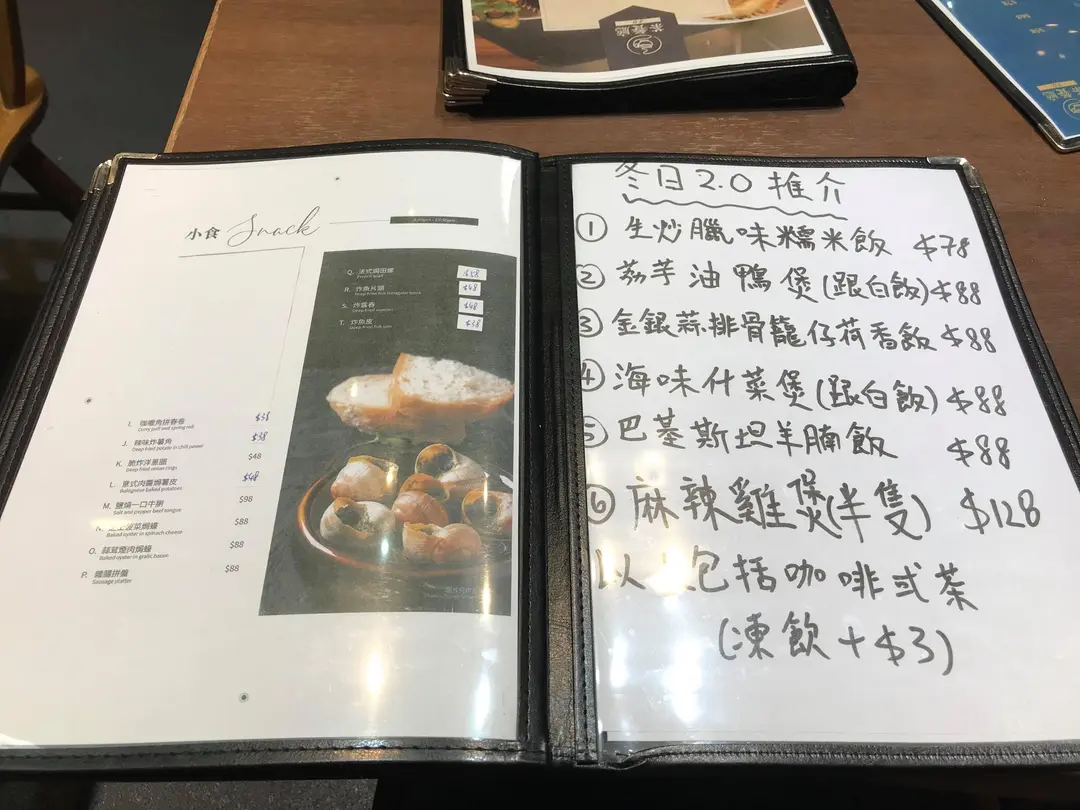 茶餐廳
小食 Snack
Q. 法式焗田螺 $58
R. 炸魚片頭 $48
S. 炸雲吞 $48
Deep fried wonton
T. 炸魚皮 $38
Deep fried fish skin
I. 咖喱角拼春卷 $38
Curry puff and spring roll
J. 辣味炸薯角 $38
Deep fried potato in chili power
K. 脆炸洋蔥圈 $48
Deep fried onion rings
L. 意式肉醬焗薯皮 $48
Bolognese baked potatoes
M. 鹽燒一口牛脷 $98
Salt and pepper beef tongue
菠菜焗蠔 $88
Baked oyster in spinach cheese
O. 蒜茸煙肉焗蠔 $88
Baked oyster in garlic bacon
P. 雜腸拼盤 $88
Sausage platter
冬日2.0推介
① 生炒臘味糯米飯 $78
② 荔芋油鴨煲(跟白飯) $88
③ 金銀蒜排骨籠仔荷香飯 $88
④ 海味什菜煲(跟白飯) $88
⑤ 巴基斯坦羊腩飯 $88
⑥ 麻辣雞煲(半隻) $128
以上包括咖啡或茶
(凍飲+$3)